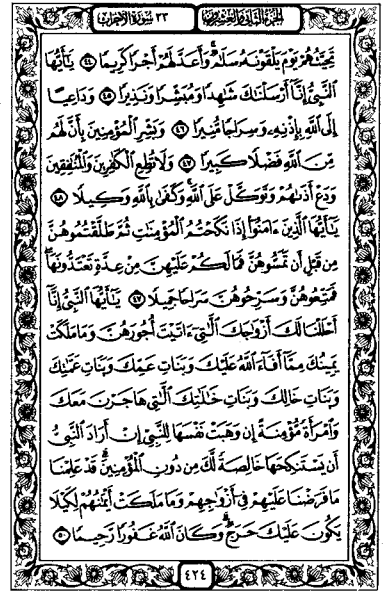 الجزء الثاني والعشرون ٣٣ سورة الأحزاب
تَحِيَّتُهُمْ يَوْمَ يَلْقَوْنَهُۥ سَلَٰمٌ وَأَعَدَّ لَهُمْ أَجْرًا كَرِيمًا ٤٤ يَٰٓأَيُّهَا
ٱلنَّبِىُّ إِنَّآ أَرْسَلْنَٰكَ شَٰهِدًا وَمُبَشِّرًا وَنَذِيرًا ٤٥ وَدَاعِيًا
إِلَى ٱللَّهِ بِإِذْنِهِۦ وَسِرَاجًا مُّنِيرًا ٤٦ وَبَشِّرِ ٱلْمُؤْمِنِينَ بِأَنَّ لَهُم
مِّنَ ٱللَّهِ فَضْلًا كَبِيرًا ٤٧ وَلَا تُطِعِ ٱلْكَٰفِرِينَ وَٱلْمُنَٰفِقِينَ
وَدَعْ أَذَىٰهُمْ وَتَوَكَّلْ عَلَى ٱللَّهِ وَكَفَىٰ بِٱللَّهِ وَكِيلًا ٤٨
يَٰٓأَيُّهَا ٱلَّذِينَ ءَامَنُوٓا۟ إِذَا نَكَحْتُمُ ٱلْمُؤْمِنَٰتِ ثُمَّ طَلَّقْتُمُوهُنَّ
مِن قَبْلِ أَن تَمَسُّوهُنَّ فَمَا لَكُمْ عَلَيْهِنَّ مِنْ عِدَّةٍ تَعْتَدُّونَهَا
فَمَتِّعُوهُنَّ وَسَرِّحُوهُنَّ سَرَاحًا جَمِيلًا ٤٩ يَٰٓأَيُّهَا ٱلنَّبِىُّ إِنَّآ
أَحْلَلْنَا لَكَ أَزْوَٰجَكَ ٱلَّٰتِىٓ ءَاتَيْتَ أُجُورَهُنَّ وَمَا مَلَكَتْ
يَمِينُكَ مِمَّآ أَفَآءَ ٱللَّهُ عَلَيْكَ وَبَنَاتِ عَمِّكَ وَبَنَاتِ عَمَّٰتِكَ
وَبَنَاتِ خَالِكَ وَبَنَاتِ خَٰلَٰتِكَ ٱلَّٰتِى هَاجَرْنَ مَعَكَ
وَٱمْرَأَةً مُّؤْمِنَةً إِن وَهَبَتْ نَفْسَهَا لِلنَّبِىِّ إِنْ أَرَادَ ٱلنَّبِىُّ
أَن يَسْتَنكِحَهَا خَالِصَةً لَّكَ مِن دُونِ ٱلْمُؤْمِنِينَ قَدْ عَلِمْنَا
مَا فَرَضْنَا عَلَيْهِمْ فِىٓ أَزْوَٰجِهِمْ وَمَا مَلَكَتْ أَيْمَٰنُهُمْ لِكَيْلَا
يَكُونَ عَلَيْكَ حَرَجٌ وَكَانَ ٱللَّهُ غَفُورًا رَّحِيمًا ٥٠
٤٢٤